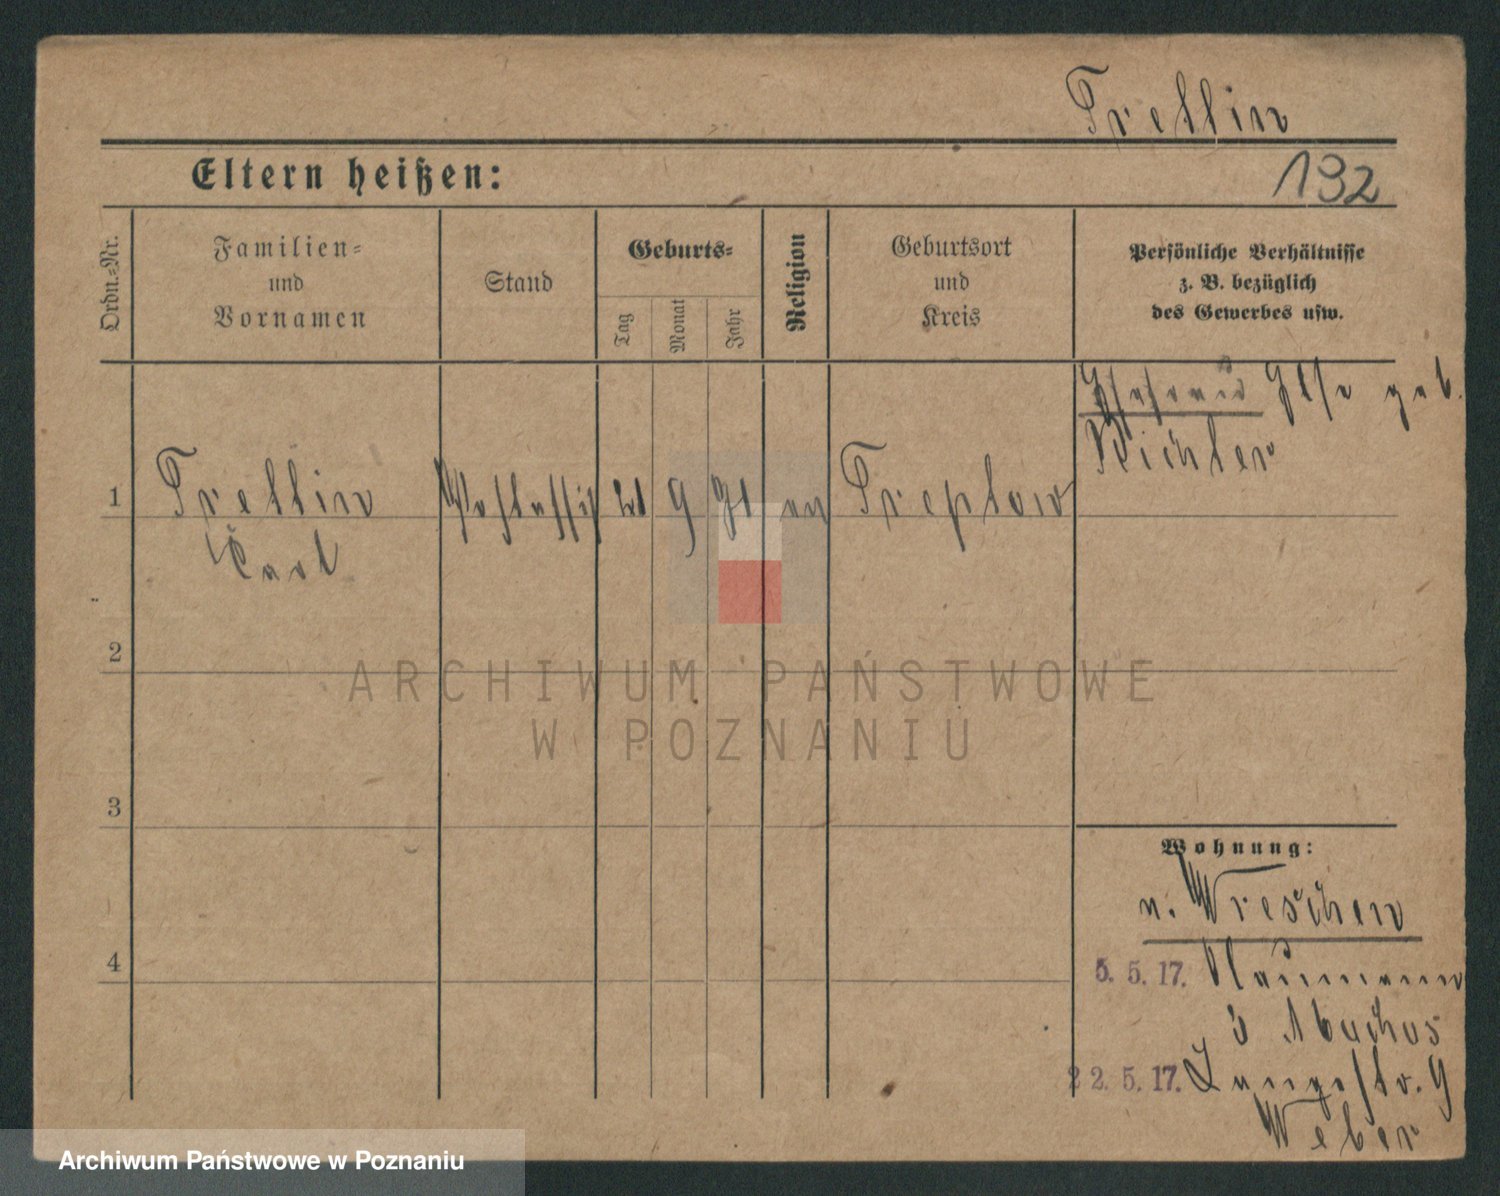 Trettin
Eltern heißen:
192
Ordn.-Nr.
Familien-
und
Vornamen
Stand
Geburts-
Tag
Monat
Jahr
Religion
Geburtsort
und
Kreis
Persönliche Verhältnisse
z. B. bezüglich
des Gewerbes usw.
Ehefrau Else geb.
Richter
1
Trettin
Carl
9
91
ev
Treptow
2
3
4
Wohnung:
n. Wreschen
5. 5. 17. Naumann
22. 5. 17. Langestr. 9
Weber
ARCHIWUM PAŃSTWOWE
W POZNANIU
Archiwum Państwowe w Poznaniu